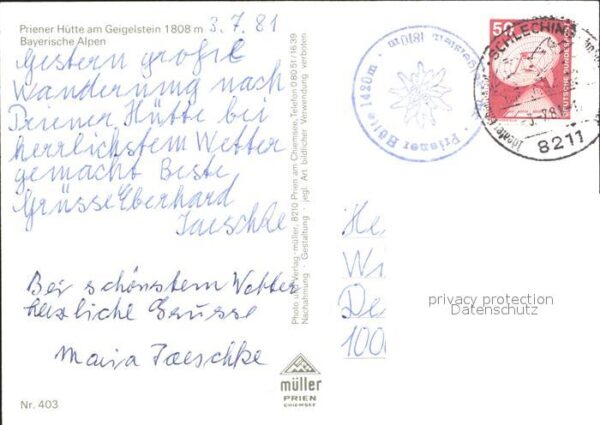 Priener Hütte am Geigelstein 1808 m
Bayerische Alpen
3.7.81
Gestern große
Wanderung nach
Priener Hütte bei
herrlichstem Wetter
gemacht Beste
Grüsse Eberhard
Jaeschke
Bei schönstem Wetter
herzliche Grüsse
Maria Jaeschke
Nr. 403
müller
PRIEN
CHIEMSEE
Photo und Verlag -müller, 8210 Prien am Chiemsee, Telefon 0 80 51/16 39
Nachahmung Gestaltung jegl. Art bildlicher Verwendung verboten
Priener Hütte 1420 m
50
DEUTSCHE BUNDESPOST
SCHLECHING
8211
He
Wi
De
100
privacy protection
Datenschutz